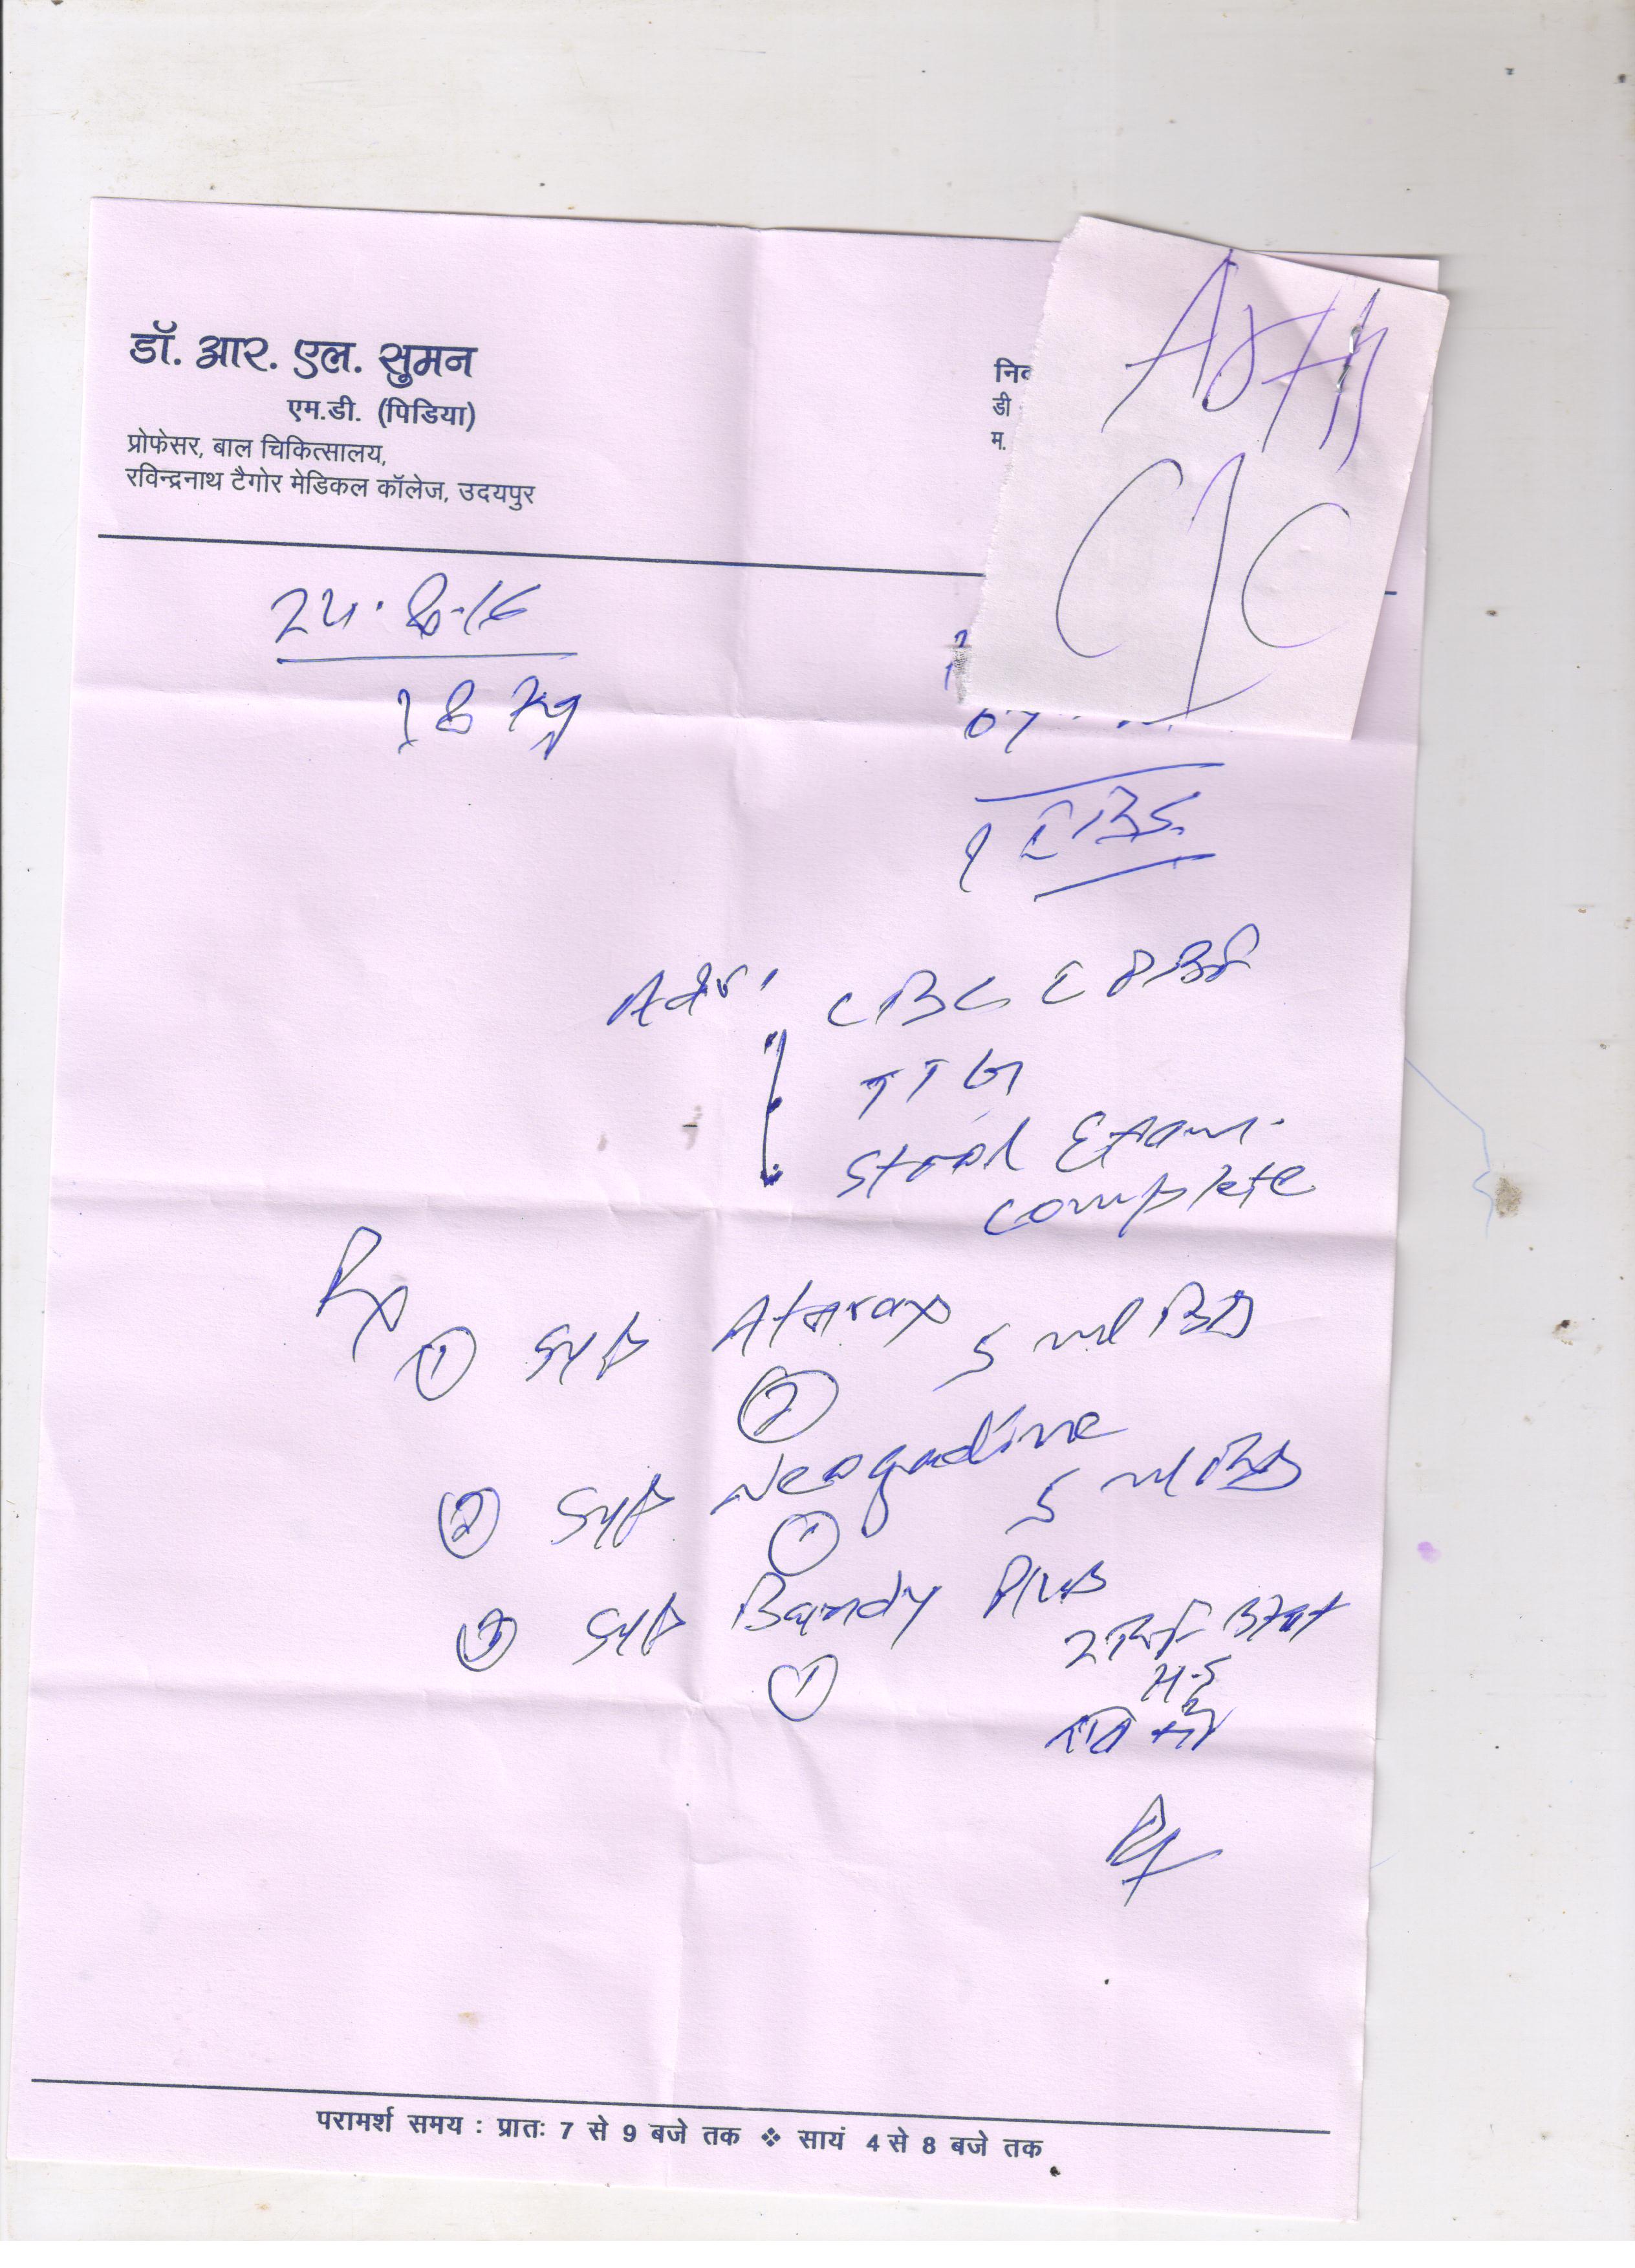 डॉ. आर. एल. सुमन
एम.डी. (पिडिया)
प्रोफेसर, बाल चिकित्सालय,
रविन्द्रनाथ टैगोर मेडिकल कॉलेज, उदयपुर
डी
म.
24.8.16
18 kg
Adv.
CBC C PBF
TTG
Stool Exam.
complete
Rx
① Syp Atarax 5 ml BD
②
② Syp Neogadine 5 ml BD
①
③ Syp Bandy Plus
①
H.S
परामर्श समय : प्रातः 7 से 9 बजे तक ❖ सायं 4 से 8 बजे तक